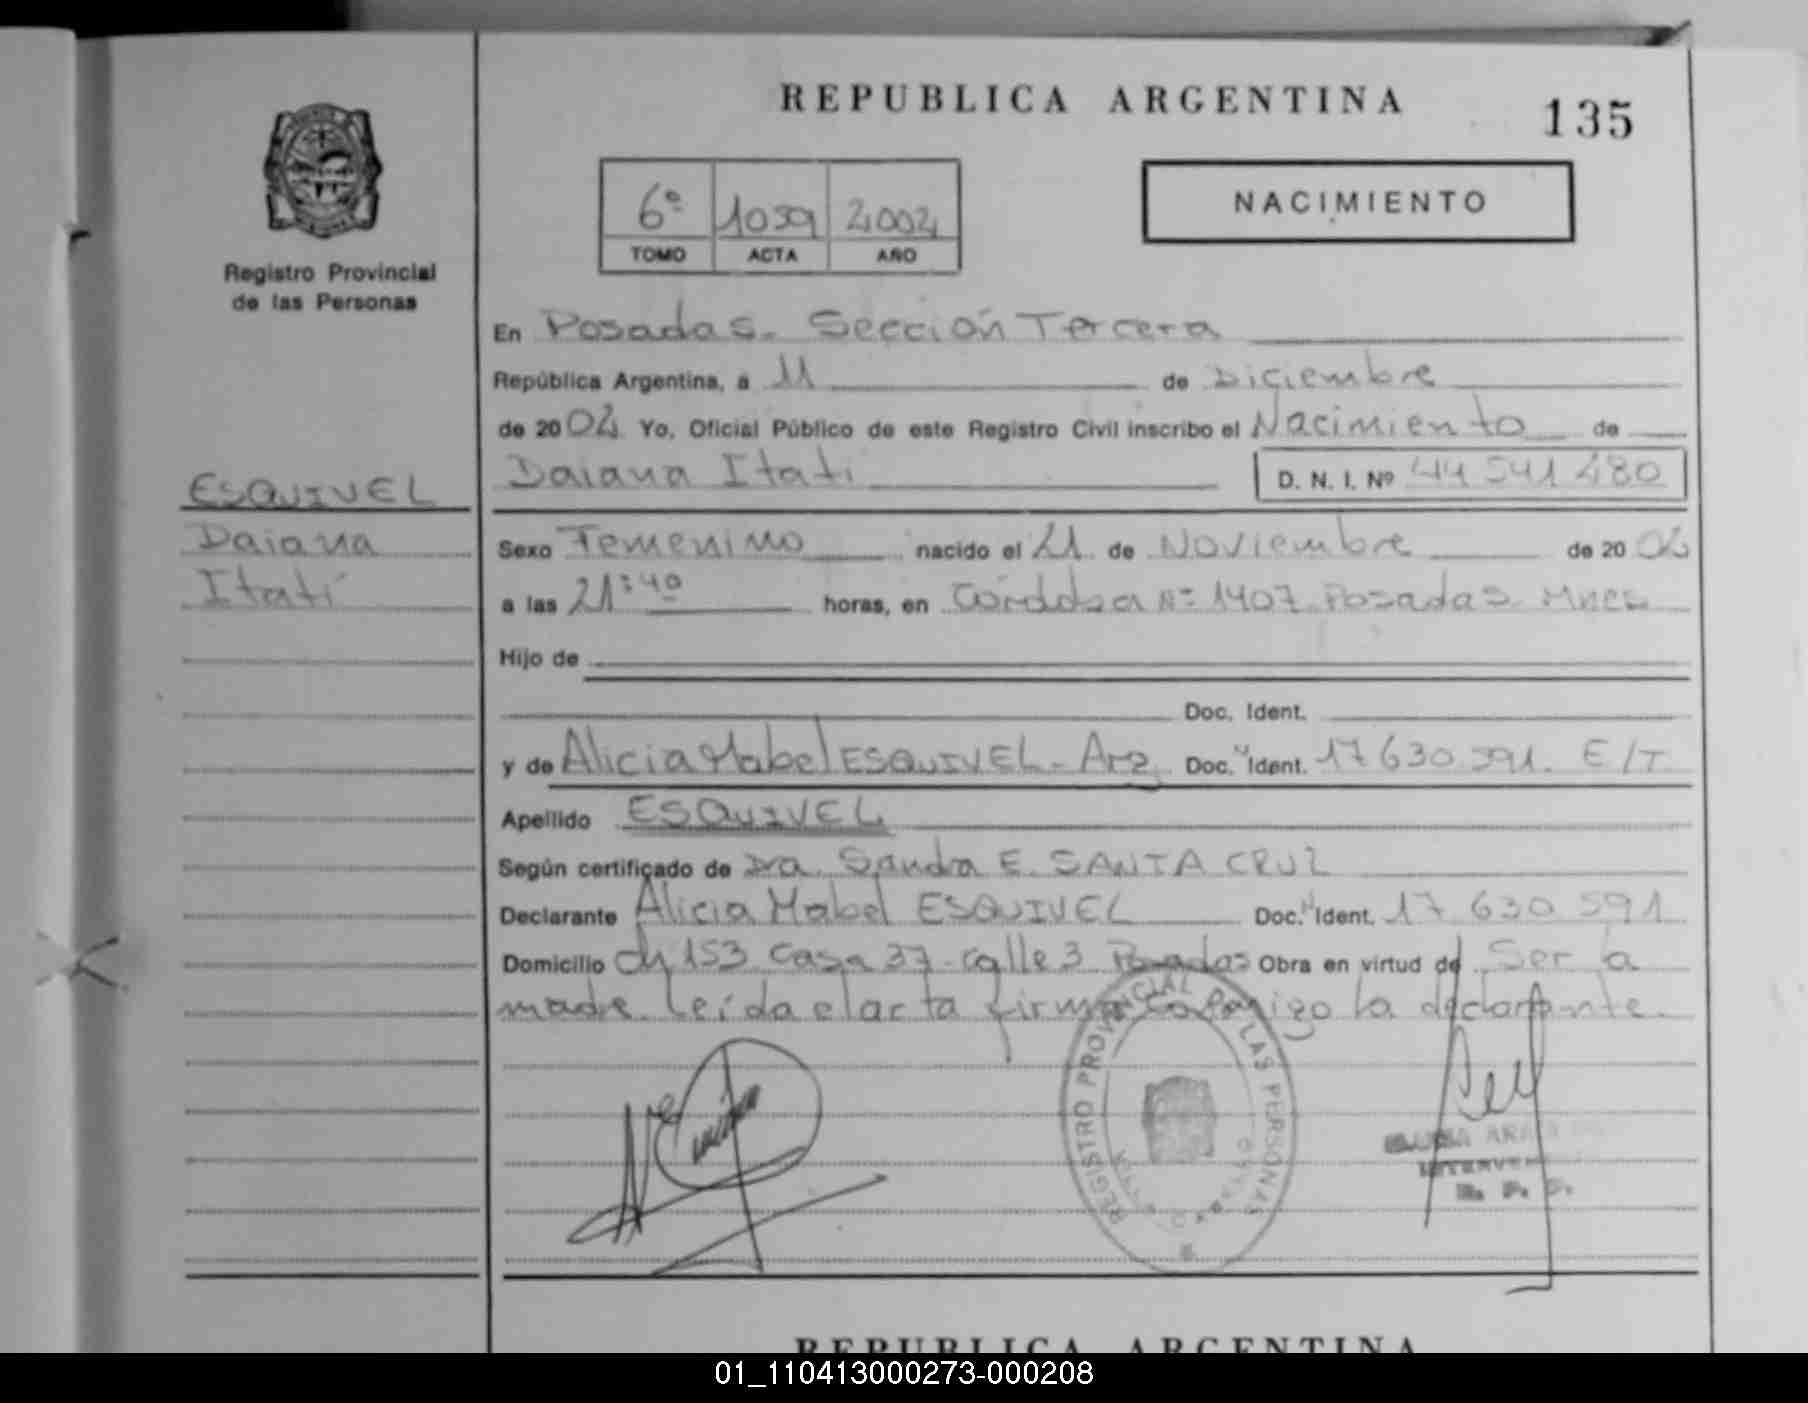 REPUBLICA ARGENTINA
135
6º 1039 2002
TOMO ACTA AÑO
NACIMIENTO
Registro Provincial
de las Personas
En Posadas. Sección Tercera
República Argentina, a 11 de Diciembre
de 2002 Yo, Oficial Público de este Registro Civil inscribo el Nacimiento de
Daiana Itatí D. N. I. Nº 44 541 480
ESQUIVEL
Daiana
Itatí
Sexo Femenino nacido el 21 de Noviembre de 2002
a las 21:40 horas, en Córdoba Nº 1407 Posadas Mnes
Hijo de
Doc. Ident.
y de Alicia Mabel ESQUIVEL - Arg Doc. Ident. 17 630 591. E/T
Apellido ESQUIVEL
Según certificado de Dra. Sandra E. SANTA CRUZ
Declarante Alicia Mabel ESQUIVEL Doc. Ident. 17 630 591
Domicilio ch 153 casa 37 - calle 3 Posadas Obra en virtud de Ser la
madre. Leída el acta firma conmigo la declarante.
REGISTRO PROVINCIAL DE LAS PERSONAS
REPUBLICA ARGENTINA
01_110413000273-000208